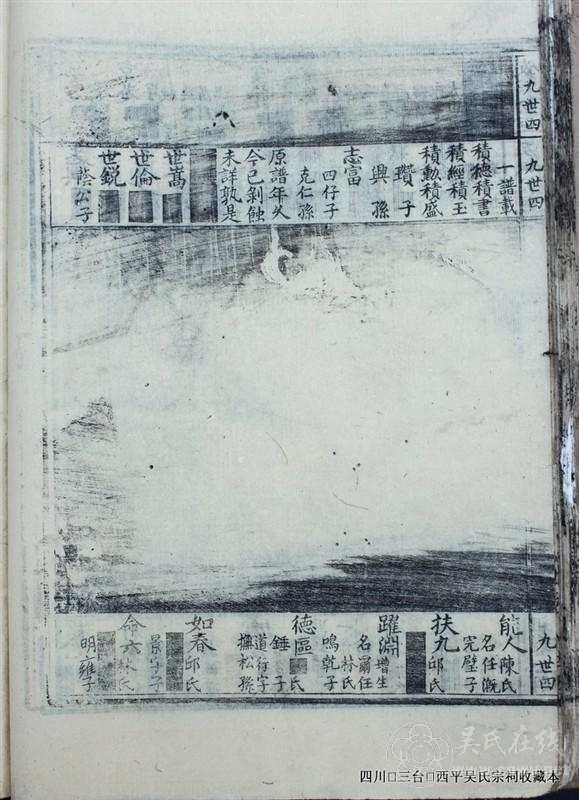 九世四
九世四
一譜載
積德積書
積經積玉
積勲積盛
瓚子
興孫
志富
四仔子
克仁孫
原譜年久
今已剝蝕
未詳孰是
世嵩
世倫
世銳
蔭公子
九世四
能人陳氏
名任溉
完璧子
扶九邱氏
躍淵增生
名翯任
林氏
鳴乾子
德區氏
錘子
道行字
撫松孫
如春邱氏
景字子
命六林氏
明雍子
吴氏在线
四川 三台 西平吴氏宗祠收藏本